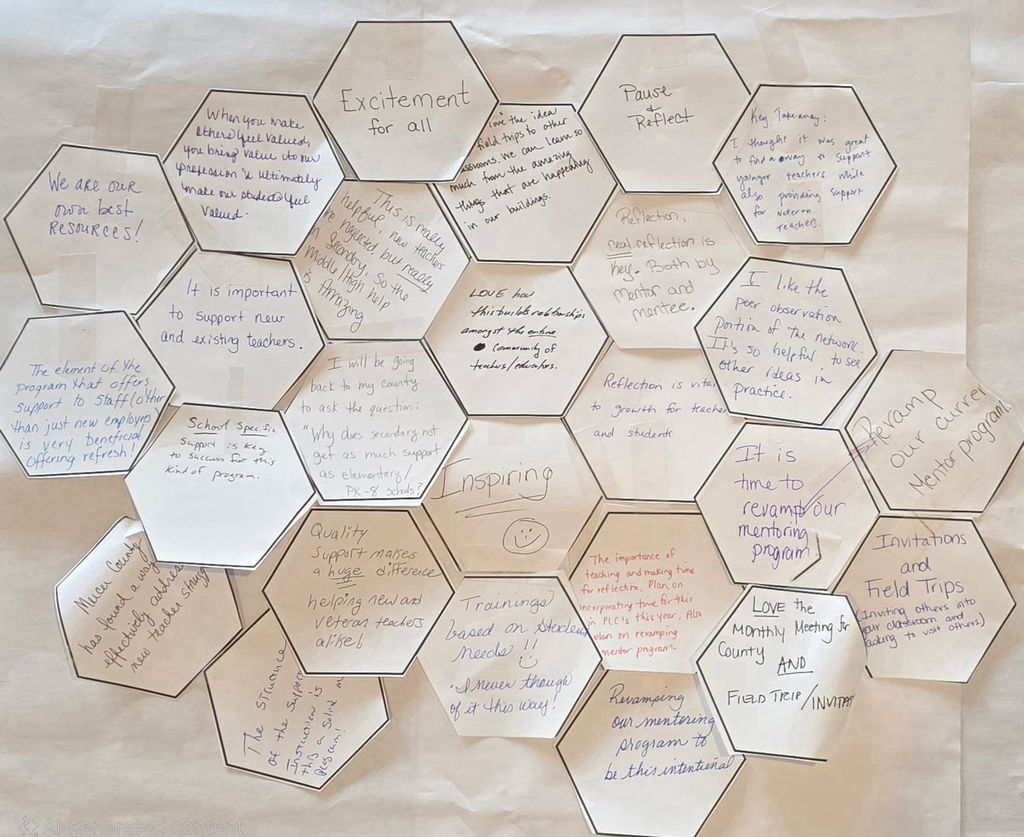 Excitement
for all
Pause
&
Reflect
When you make
others feel valued,
you bring value to our
profession & ultimately
make our students feel
valued.
love the idea
field trips to other
classrooms. We can learn so
much from the amazing
things that are happening
in our buildings.
Key Takeaway:
I thought it was great
to find a way to support
younger teachers while
also providing support
for veteran
teachers.
We are our
own best
RESOURCES!
This is really
helpful, new teachers
are neglected, but really
in Secondary, so the
middle/High help
is Amazing
Reflection,
real reflection is
key. Both by
mentor and
mentee.
It is important
to support new
and existing teachers.
LOVE how
this builds relationships
amongst the entire
community of
teachers/educators.
I like the
peer observation
portion of the network.
It's so helpful to see
other ideas in
practice.
The element of the
program that offers
support to staff (other
than just new employees)
is very beneficial.
Offering refresh!
I will be going
back to my county
to ask the question:
"Why does secondary not
get as much support
as elementary/
PK-8 schools?
Reflection is vital
to growth for teacher
and students
Revamp
our curren
Mentor program
School Specific
support is key
to success for this
kind of program.
Inspiring
It is
time to
revamp our
mentoring
program.
Mercer County
has found a way
effectively address
new teacher strugg
Quality
support makes
a huge difference
helping new and
veteran teachers
alike!
The importance of
teaching and making time
for reflection. Plan on
incorporating time for this
in PLC's this year. Also
plan on revamping
mentor program.
Invitations
and
Field Trips
(Inviting others into
your classroom and
asking to visit others)
Trainings
based on Student
needs!!
"I never though
of it this way!
LOVE the
Monthly Meeting for
County
AND
FIELD TRIP/INVITAT
The
of the suppor
Instruction is
this a solid
program!
Revamping
our mentoring
program to
be this intentional
AI-generated content